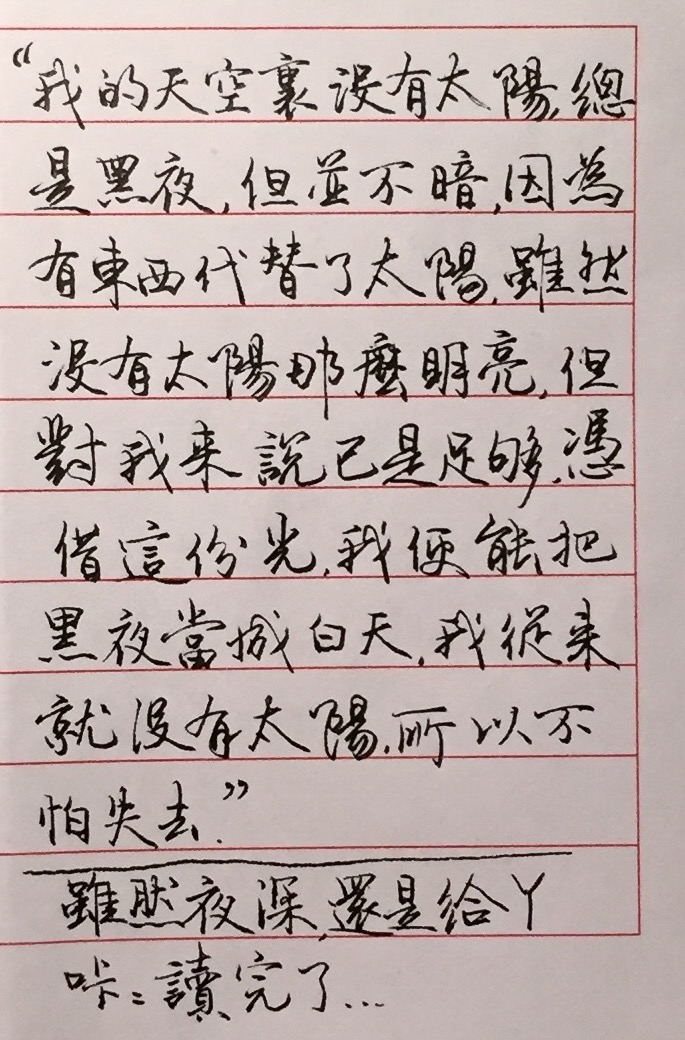 “我的天空裏沒有太陽,總
是黑夜,但並不暗,因為
有東西代替了太陽,雖然
沒有太陽那麼明亮,但
對我来說已是足够,憑
借這份光,我便能把
黑夜當城白天,我從来
就沒有太陽,所以不
怕失去.”
雖然夜深,還是給丫
咔=讀完了...